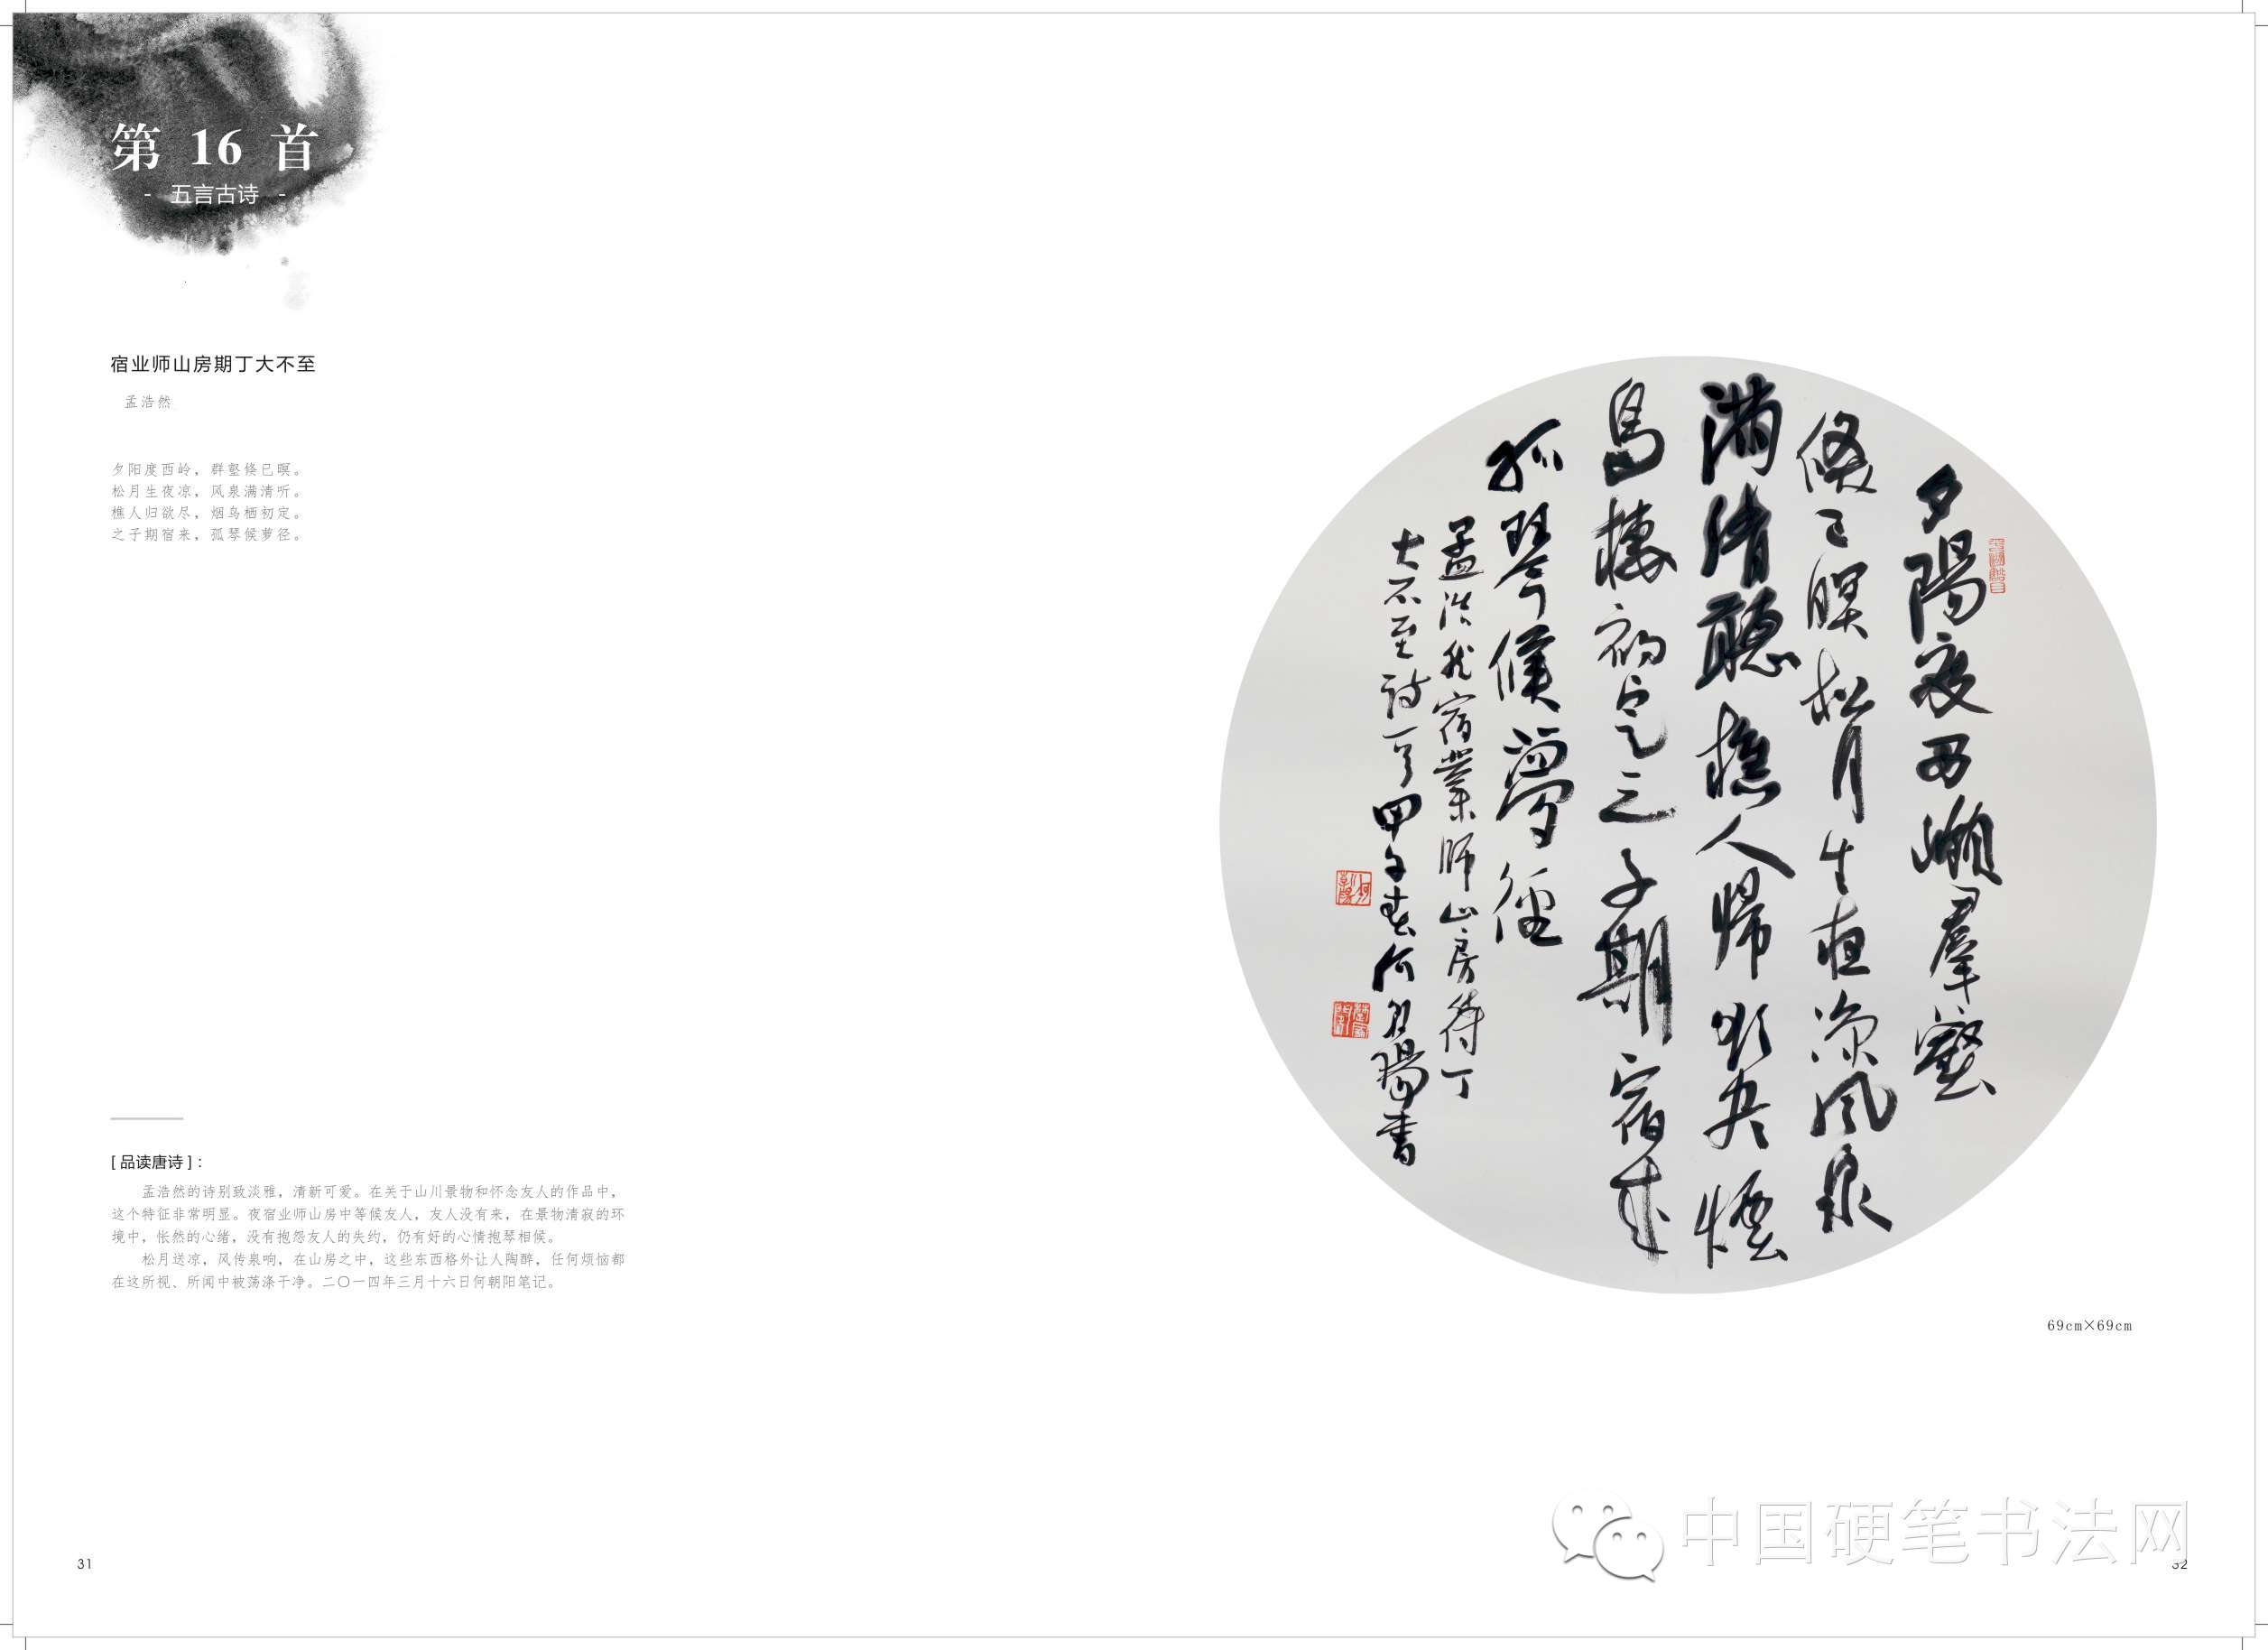 第 16 首
- 五言古诗 -
宿业师山房期丁大不至
孟浩然
夕阳度西岭，群壑倏已暝。
松月生夜凉，风泉满清听。
樵人归欲尽，烟鸟栖初定。
之子期宿来，孤琴候萝径。
[ 品读唐诗 ]：
孟浩然的诗别致淡雅，清新可爱。在关于山川景物和怀念友人的作品中，
这个特征非常明显。夜宿业师山房中等候友人，友人没有来，在景物清寂的环
境中，怅然的心绪，没有抱怨友人的失约，仍有好的心情抱琴相候。
松月送凉，风传泉响，在山房之中，这些东西格外让人陶醉，任何烦恼都
在这所视、所闻中被荡涤干净。二〇一四年三月十六日何朝阳笔记。
31
夕陽度西嶺羣壑
倏已暝松月生夜涼風泉
满清聽樵人歸欲盡煙
鳥棲初定之子期宿来
孤琴候蘿徑
孟浩然宿業師山房待丁
大不至诗一首甲午春何朝陽書
69cm×69cm
中国硬笔书法网
32